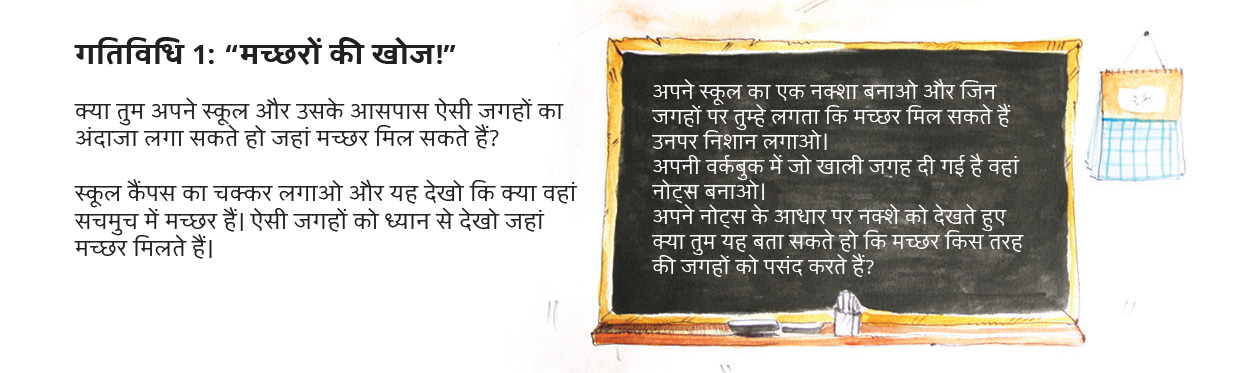 गतिविधि 1: “मच्छरों की खोज!”
क्या तुम अपने स्कूल और उसके आसपास ऐसी जगहों का
अंदाजा लगा सकते हो जहां मच्छर मिल सकते हैं?
स्कूल कैंपस का चक्कर लगाओ और यह देखो कि क्या वहां
सचमुच में मच्छर हैं| ऐसी जगहों को ध्यान से देखो जहां
मच्छर मिलते हैं|
अपने स्कूल का एक नक्शा बनाओ और जिन
जगहों पर तुम्हे लगता कि मच्छर मिल सकते हैं
उनपर निशान लगाओ|
अपनी वर्कबुक में जो खाली जगह दी गई है वहां
नोट्स बनाओ|
अपने नोट्स के आधार पर नक्शे को देखते हुए
क्या तुम यह बता सकते हो कि मच्छर किस तरह
की जगहों को पसंद करते हैं?